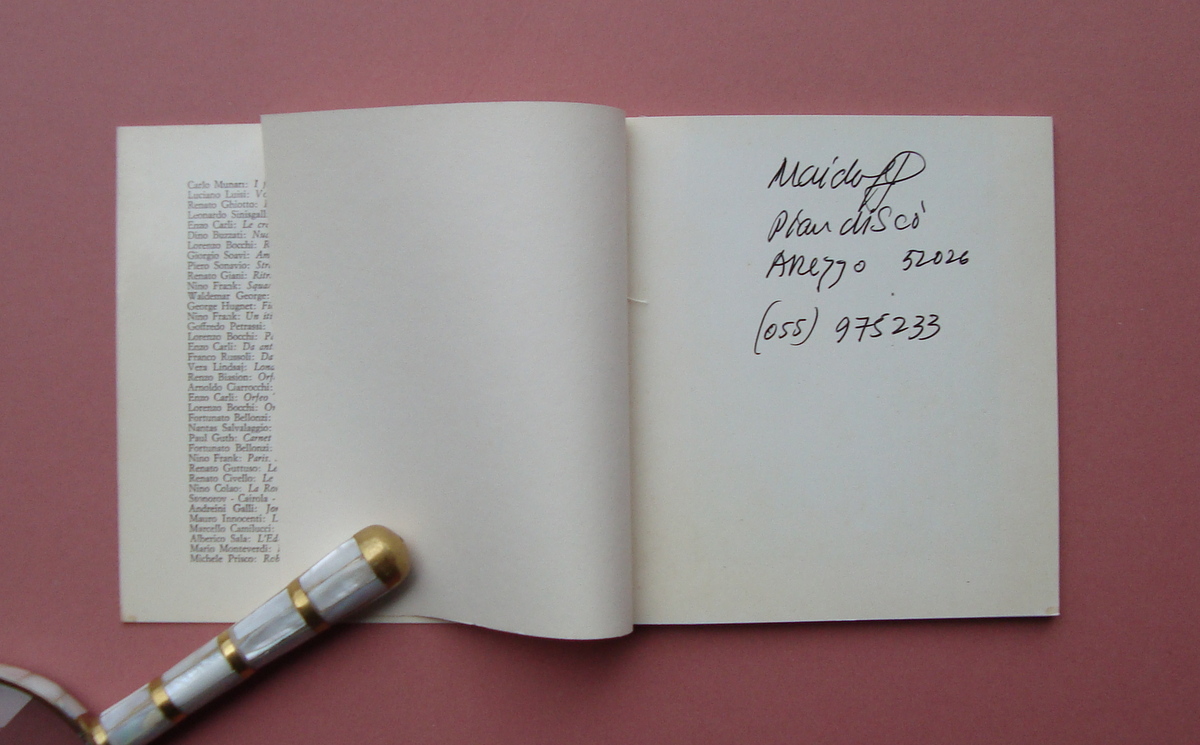 Carlo Munari: I
Luciano Luisi: Vo
Renato Ghiotto:
Leonardo Sinisgall
Enzo Carli: Le cr
Dino Buzzati: Nuo
Lorenzo Bocchi: R
Giorgio Soavi: Am
Piero Sanavio: Str
Renato Giani: Ritr
Nino Frank: Squa
Waldemar George:
George Hugnet: Fi
Nino Frank: Un iti
Goffredo Petrassi:
Lorenzo Bocchi: P
Enzo Carli: Da ant
Franco Russoli: Da
Vera Lindsay: Lon
Renzo Biasion: Orf
Arnoldo Ciarrocchi:
Enzo Carli: Orfeo
Lorenzo Bocchi: Or
Fortunato Bellonzi:
Nantas Salvalaggio:
Paul Guth: Carnet
Fortunato Bellonzi:
Nino Frank: Paris.
Renato Guttuso: Le
Renato Civello: Le
Nino Colao: La Ro
Ssmonov - Cairola -
Andreini Galli: Jor
Mauro Innocenti: L
Marcello Camilucci:
Alberico Sala: L'Ed
Mario Monteverdi:
Michele Prisco: Rob
Maidoff
Piandiscò
Arezzo 52026
(055) 975233